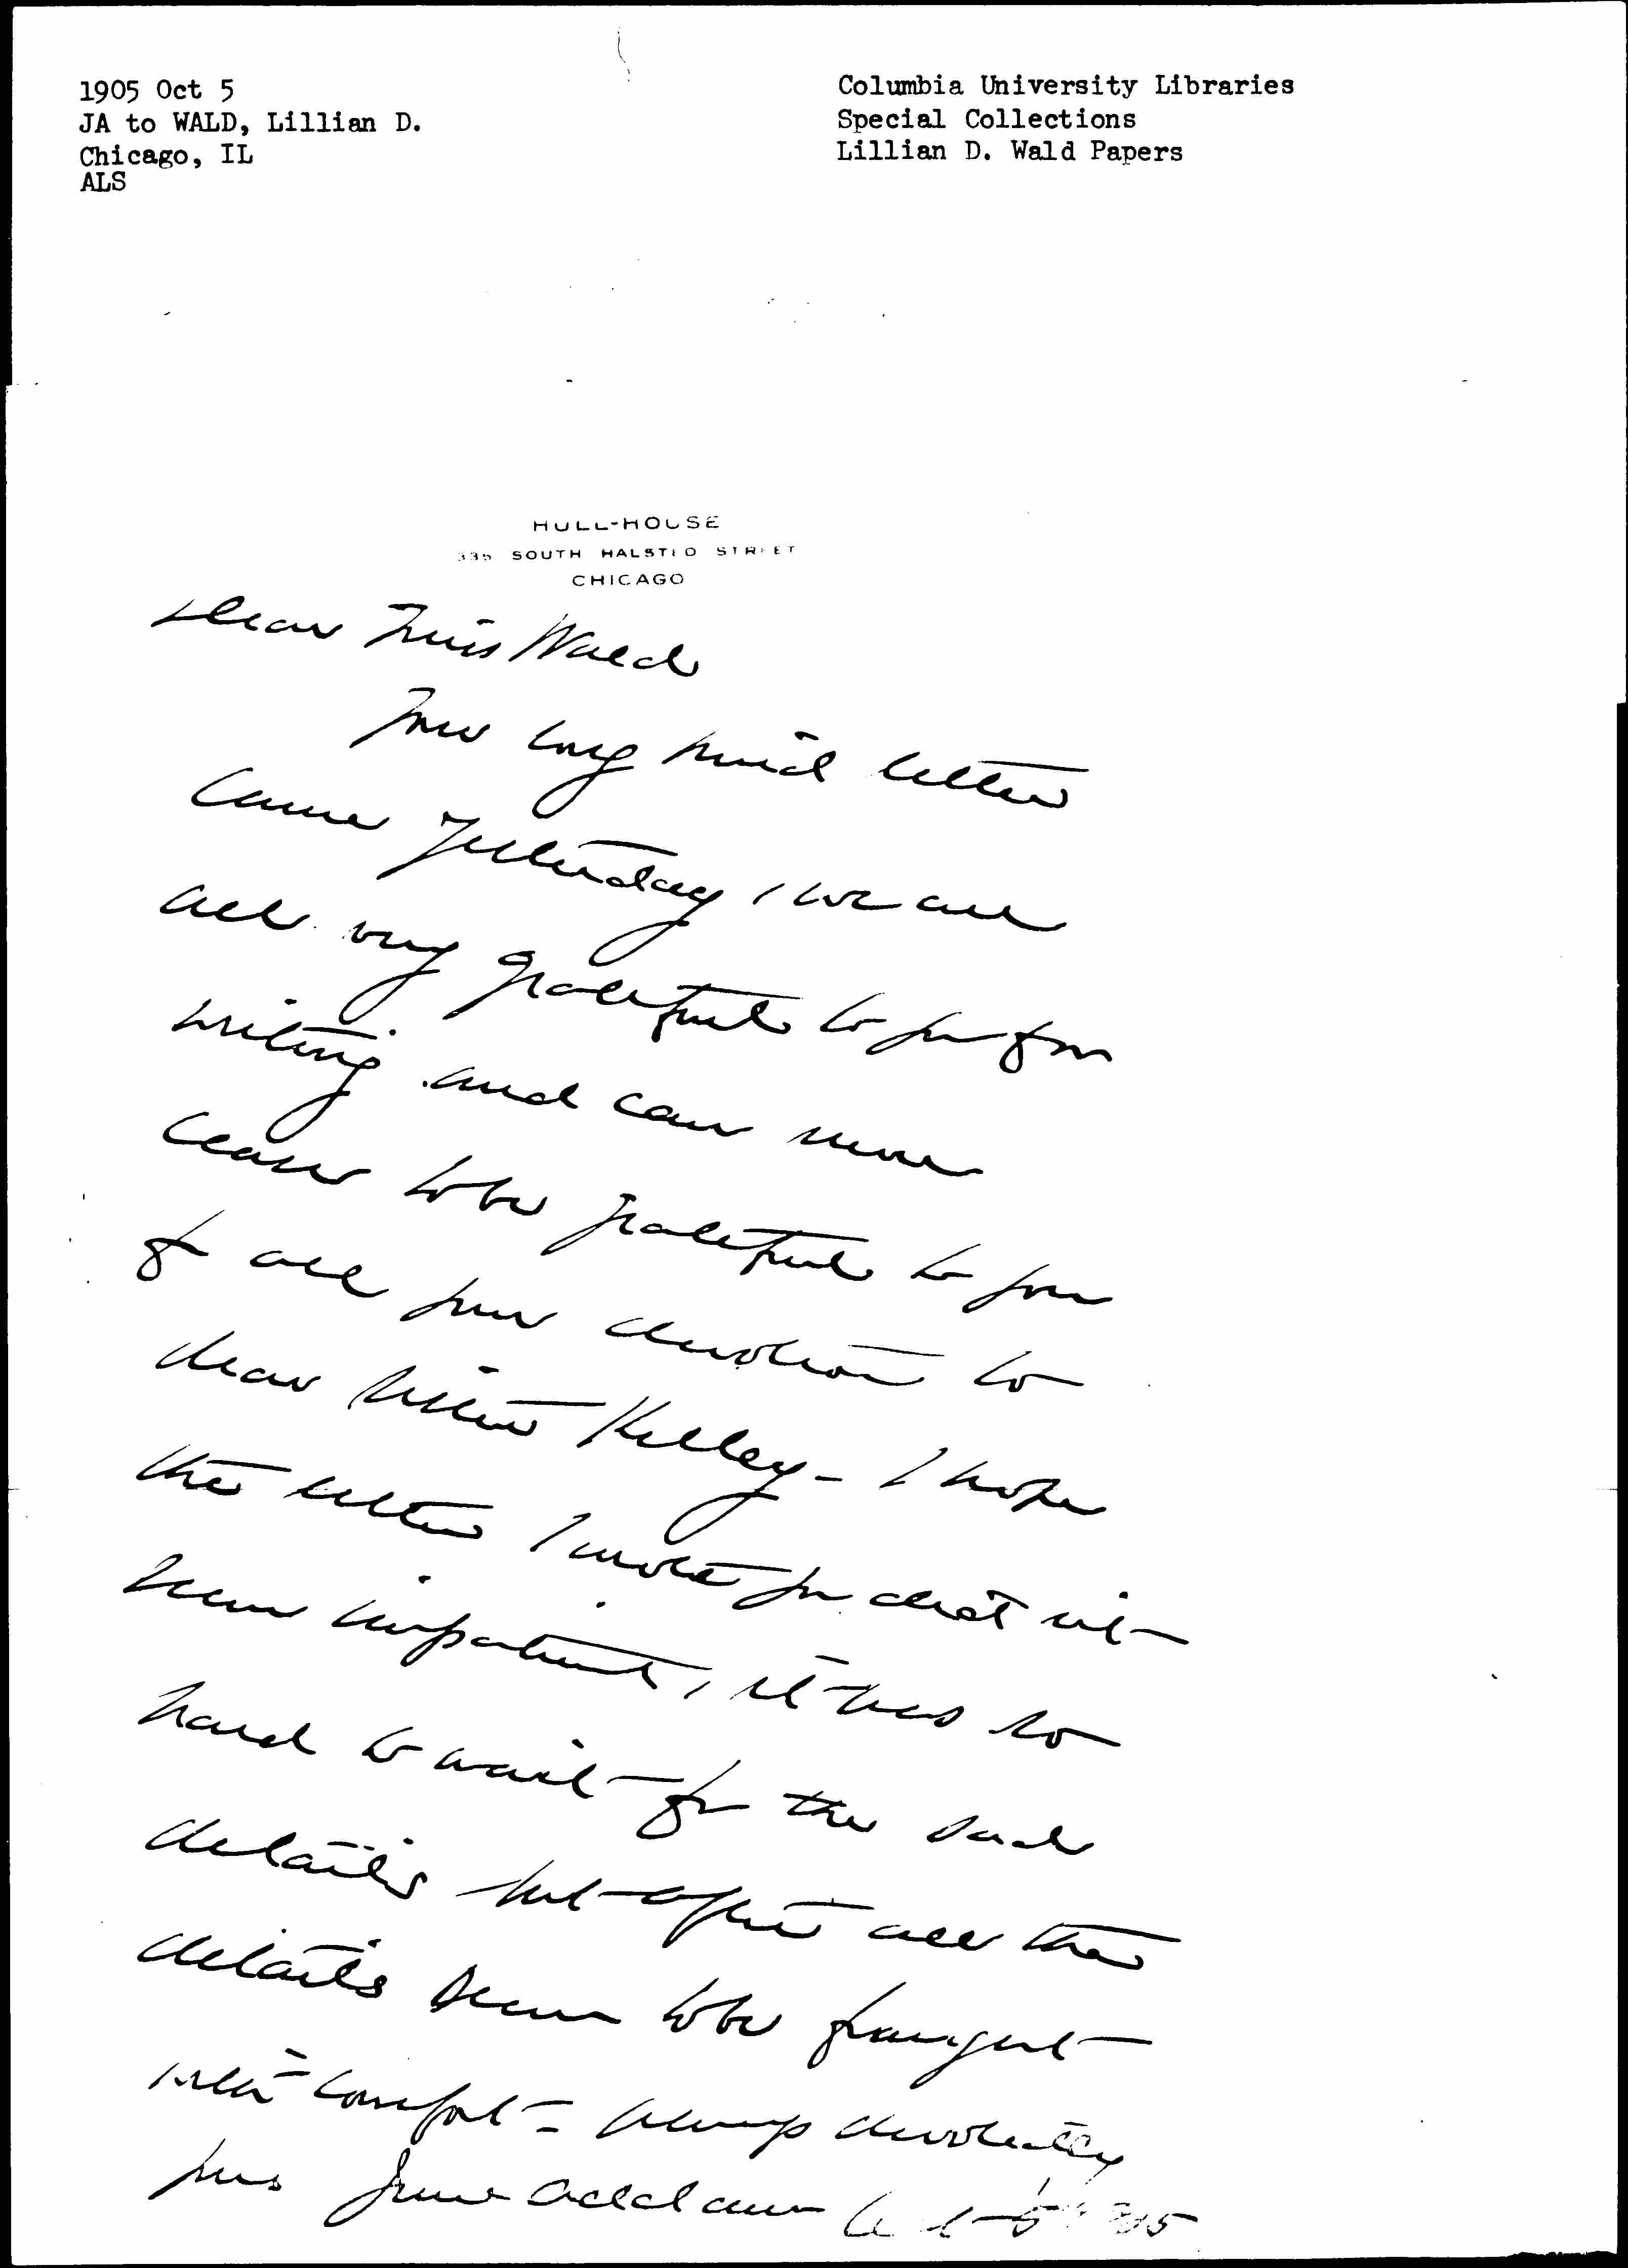 1905 Oct 5
JA to WALD, Lillian D.
Chicago, IL
ALS
Columbia University Libraries
Special Collections
Lillian D. Wald Papers
HULL-HOUSE
335 SOUTH HALSTED STREET
CHICAGO
Dear Miss Wald
Your long kind letter
came yesterday, we are
all very grateful to you for
writing and can never
cease to be grateful to you
for all your devotion to
dear Sister Kelley - I hope
the letter I wrote you did not
seem impatient, it was so
hard to wait for the sad
details but after all the
details seem to be fraught
with comfort - Always devotedly
yours Jane Addams Oct 5" 1905